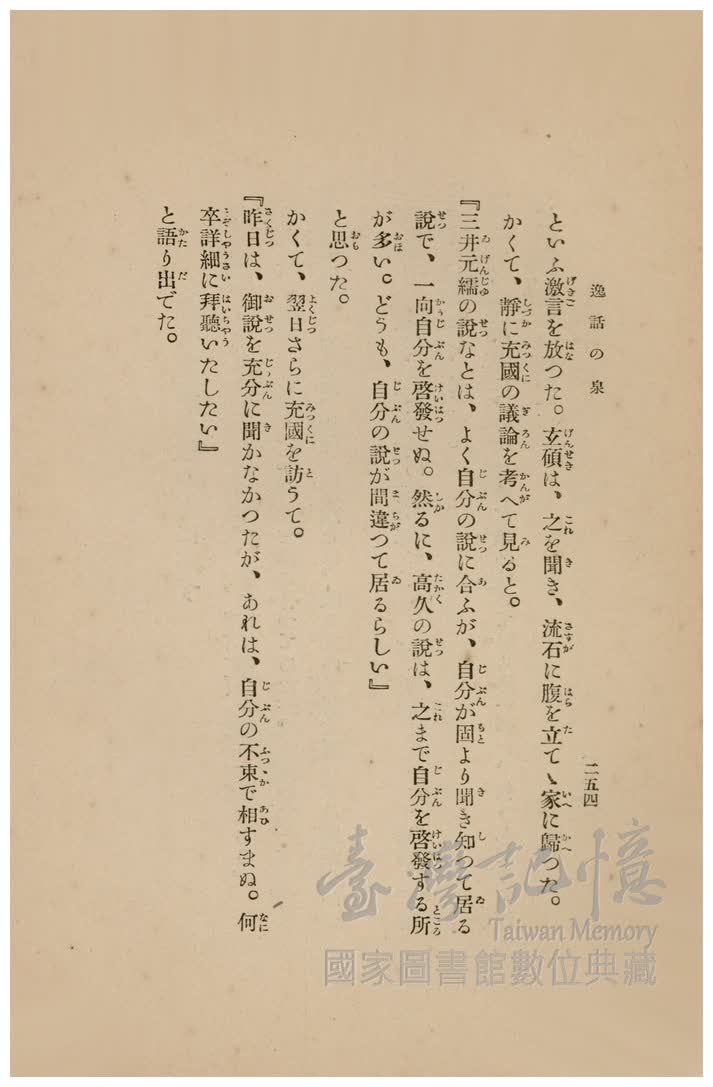 逸話の泉
二五四
といふ激言を放つた。玄碩は、之を聞き、流石に腹を立てゝ家に歸つた。
かくて、靜に充國の議論を考へて見ると。
『三井元孺の說なとは、よく自分の說に合ふが、自分が固より聞き知つて居る
說で、一向自分を啓發せぬ。然るに、高久の說は、之まで自分を啓發する所
が多い。どうも、自分の說が間違つて居るらしい』
と思つた。
かくて、翌日さらに充國を訪うて。
『昨日は、御說を充分に聞かなかつたが、あれは、自分の不束で相すまぬ。何
卒詳細に拜聽いたしたい』
と語り出でた。
臺灣記憶
Taiwan Memory
國家圖書館數位典藏